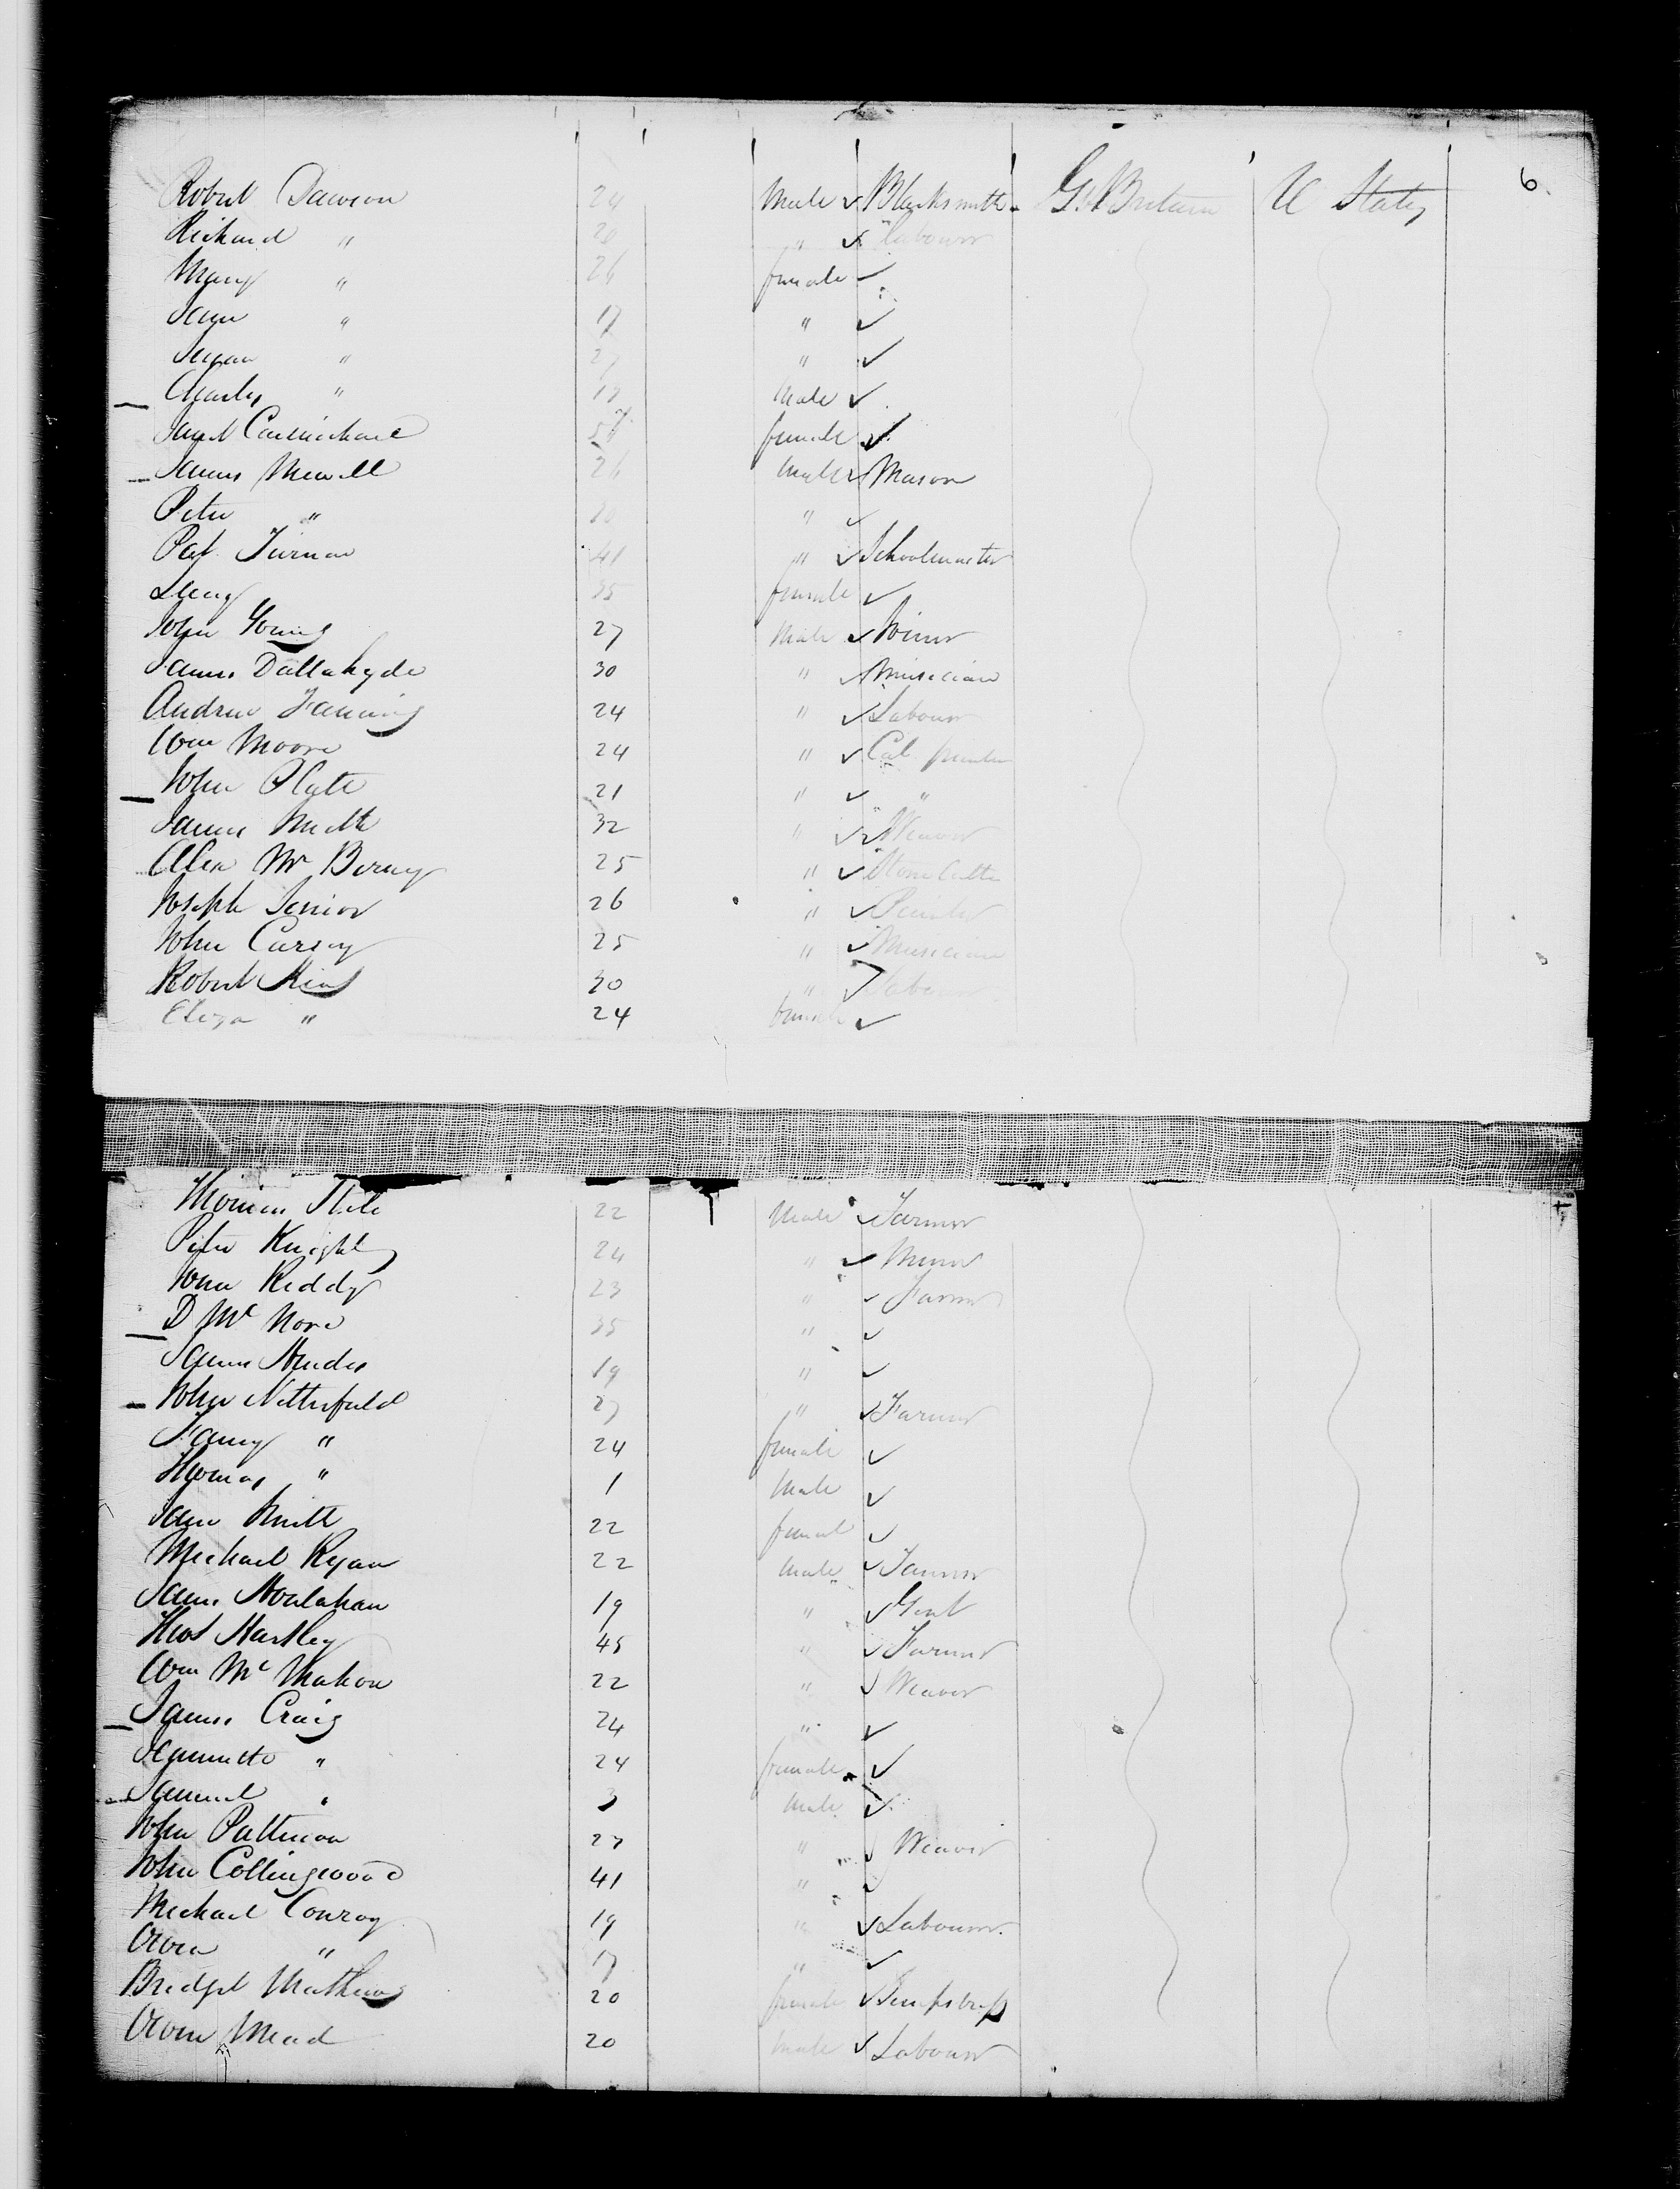 6.
Robert Dawson 24 Male Blacksmith Gt Britain U States
Richard " 20 " Labourer
Mary " 26 female
Jane " 17 "
Susan " "
Charles " Male
Janet Carmichael female
James Mewill 26 male Mason
Peter " "
Pat. Turnan 41 " Schoolmaster
Lucy 35 female
John Young 27 Male Joiner
James Dallahyde 30 " Musician
Andrew Fanning 24 " Labourer
Wm Moore 24 " Cal. printer
John Platt 21 " "
James Smith 32 " Weaver
Alex Mc Birney 25 " Stone Cutter
Joseph Senior 26 "
John Carsey 25 " Musician
Robert King 30 " Labourer
Eliza " 24 female
Thomas Stele 22 Male Farmer
Peter Knightly 24 " Miner
John Reddy 23 " Farmer
D Mc Nore 35 "
James 19 "
John Netterfield 27 " Farmer
Fanny " 24 female
Thomas " 1 Male
Jane Smith 22 female
Michael Ryan 22 male Farmer
James Houlahan 19 " Gent
Thos Hartley 45 " Farmer
Wm Mc Mahon 22 " Weaver
James Craig 24 "
Jannette " 24 female
Samuel " 3 Male
John Patterson 27 " Weaver
John Collingwood 41 "
Michael Conroy 19 " Labourer.
Owen " 17 "
Bridget Mathews 20 female Sempstress
Owen Mead 20 Male Labourer